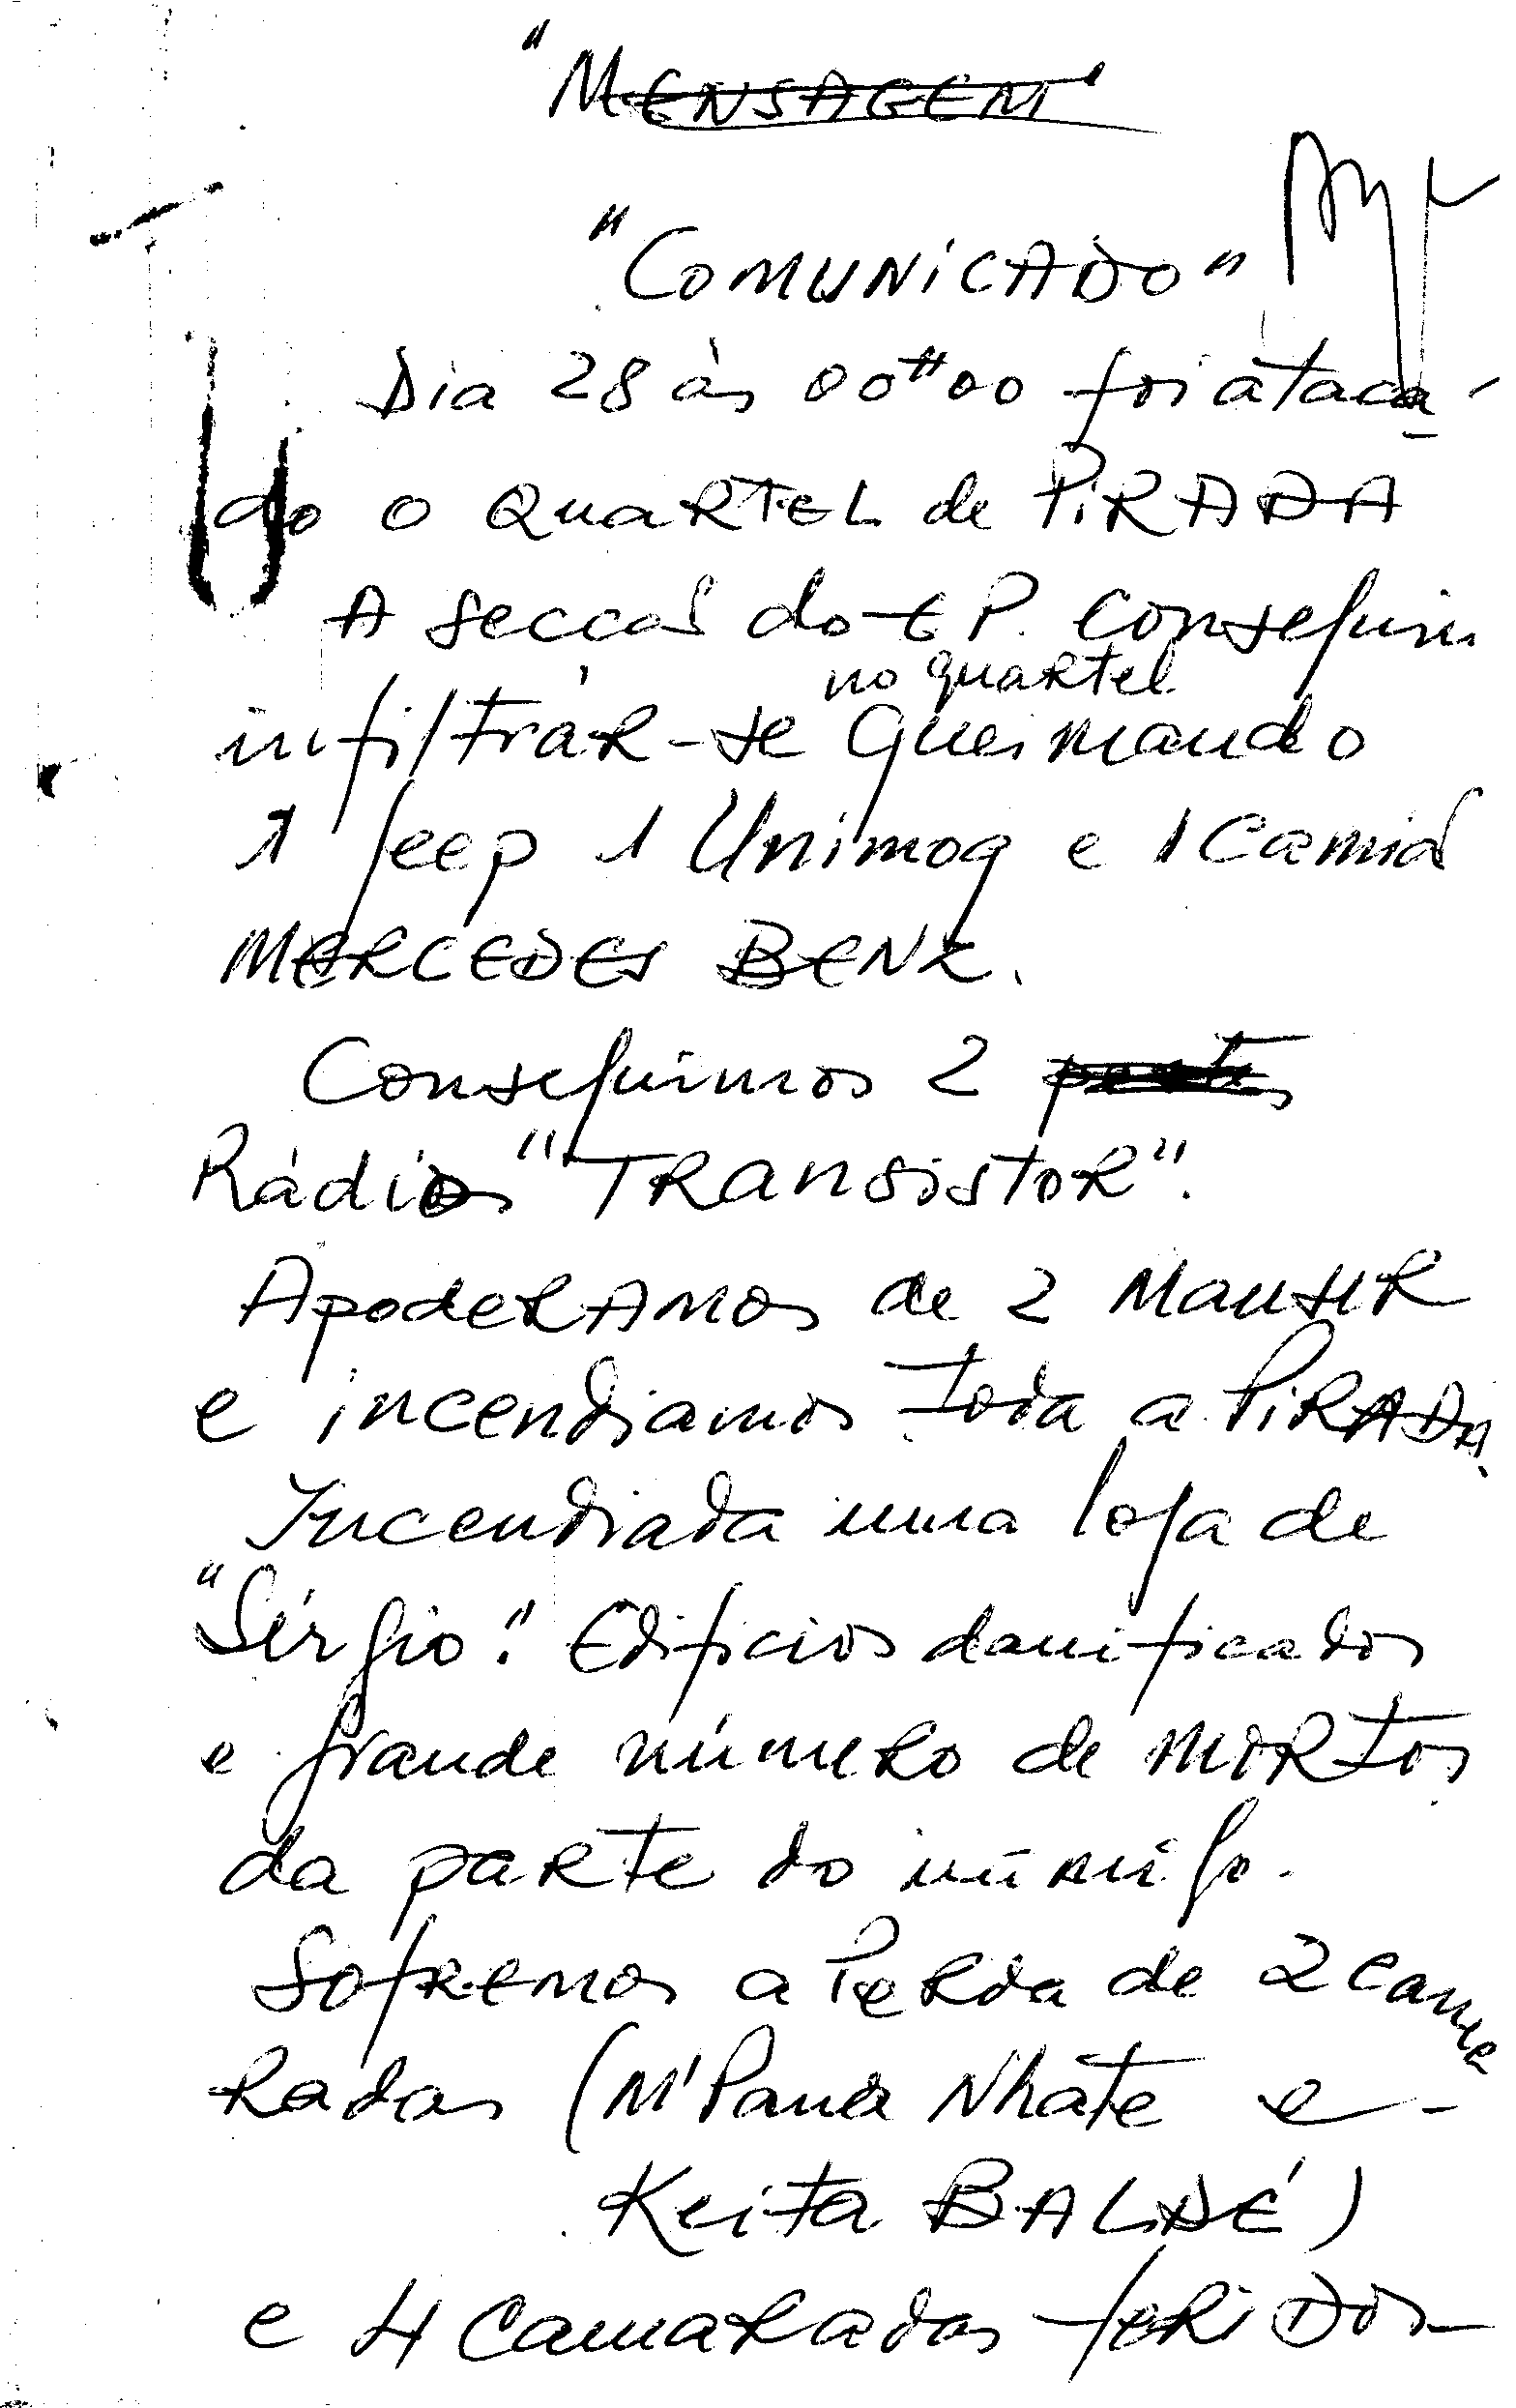 "MENSAGEM"
"COMUNICADO"
Dia 28 às 00H00 foi ataca-
do o QUARTEL de PIRADA
A secção do EP. conseguiu
no quartel
infiltrár-se queimando
1 Jeep 1 Unimog e 1 Camiã
MERCEDES BENZ.
Conseguimos 2
Rádios "TRANSISTOR".
Apoderamos de 2 Mauser
e incendiamos toda a PIRADA.
Incendiada uma loja de
"Sérgio". Edificios danificados
e grande número de mortos
da parte do inimigo.
Sofremos a Perda de 2 cama
radas (M'Pana Nhate e -
Keita BALDÉ)
e 4 camaradas feridos